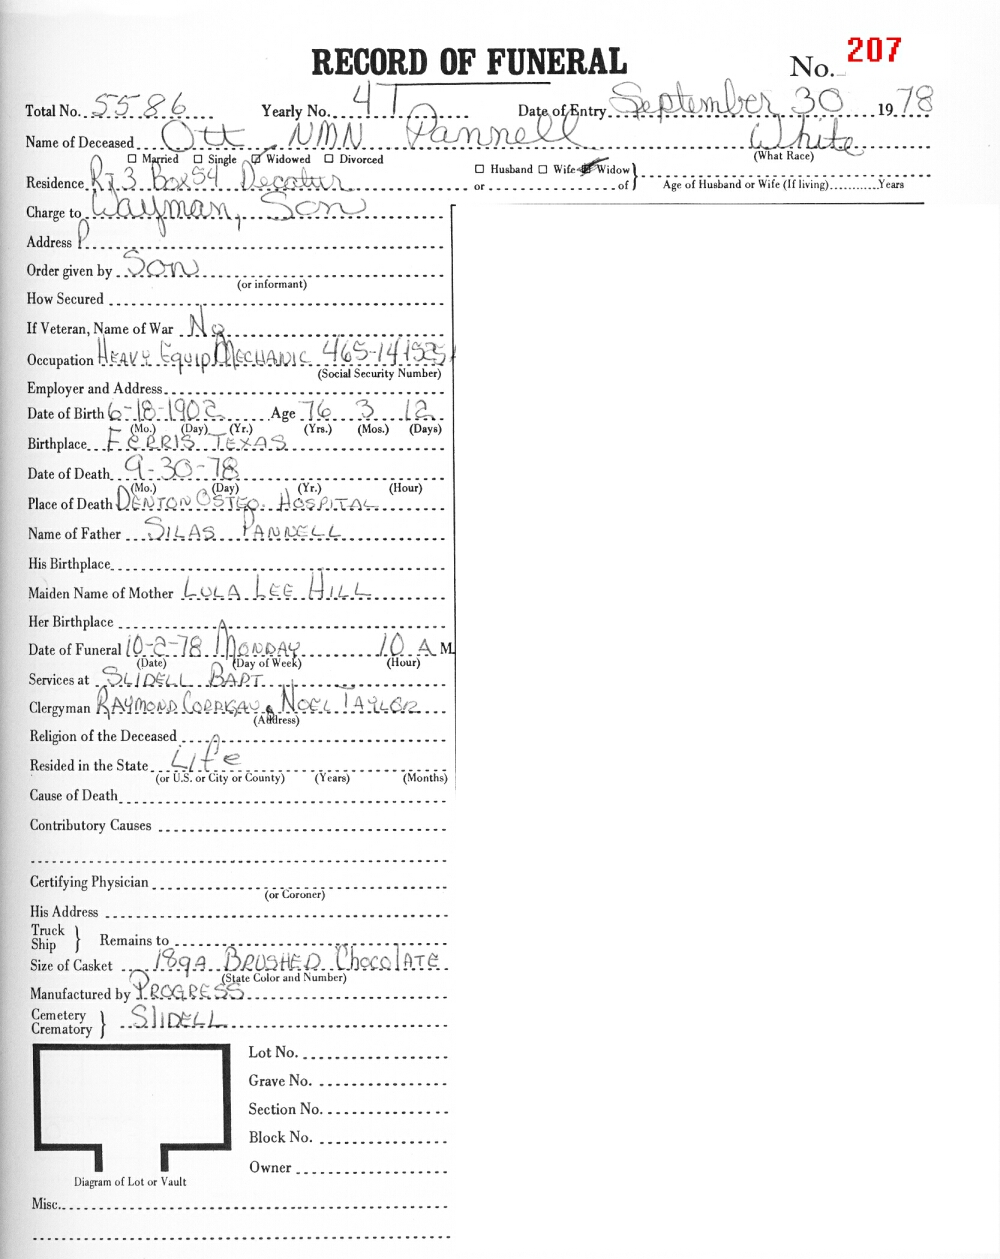 RECORD OF FUNERAL
No. 207
Total No. 5586 Yearly No. 4T Date of Entry September 30 1978
Name of Deceased Ott NMN Pannell White
(What Race)
☐ Married ☐ Single ☑ Widowed ☐ Divorced
☐ Husband ☐ Wife Widow
Residence Rt 3 Box 54 Decatur or of Age of Husband or Wife (If living) Years
Charge to Wayman, Son
Address
Order given by Son
(or informant)
How Secured
If Veteran, Name of War No
Occupation HEAVY EQUIP MECHANIC 465-141525
(Social Security Number)
Employer and Address
Date of Birth 6-18-1902 Age 76 3 12
(Mo.) (Day) (Yr.) (Yrs.) (Mos.) (Days)
Birthplace FERRIS TEXAS
Date of Death 9-30-78
(Mo.) (Day) (Yr.) (Hour)
Place of Death DENTON OSTEO. HOSPITAL
Name of Father SILAS PANNELL
His Birthplace
Maiden Name of Mother LULA LEE HILL
Her Birthplace
Date of Funeral 10-2-78 MONDAY 10 A M.
(Date) (Day of Week) (Hour)
Services at SLIDELL BAPT
Clergyman RAYMOND CORRGAN & NOEL TAYLOR
(Address)
Religion of the Deceased
Resided in the State Life
(or U.S. or City or County) (Years) (Months)
Cause of Death
Contributory Causes
Certifying Physician
(or Coroner)
His Address
Truck
Ship } Remains to
Size of Casket 189A BRUSHED CHOCOLATE
(State Color and Number)
Manufactured by PROGRESS
Cemetery
Crematory } SLIDELL
Lot No.
Grave No.
Section No.
Block No.
Owner
Diagram of Lot or Vault
Misc.